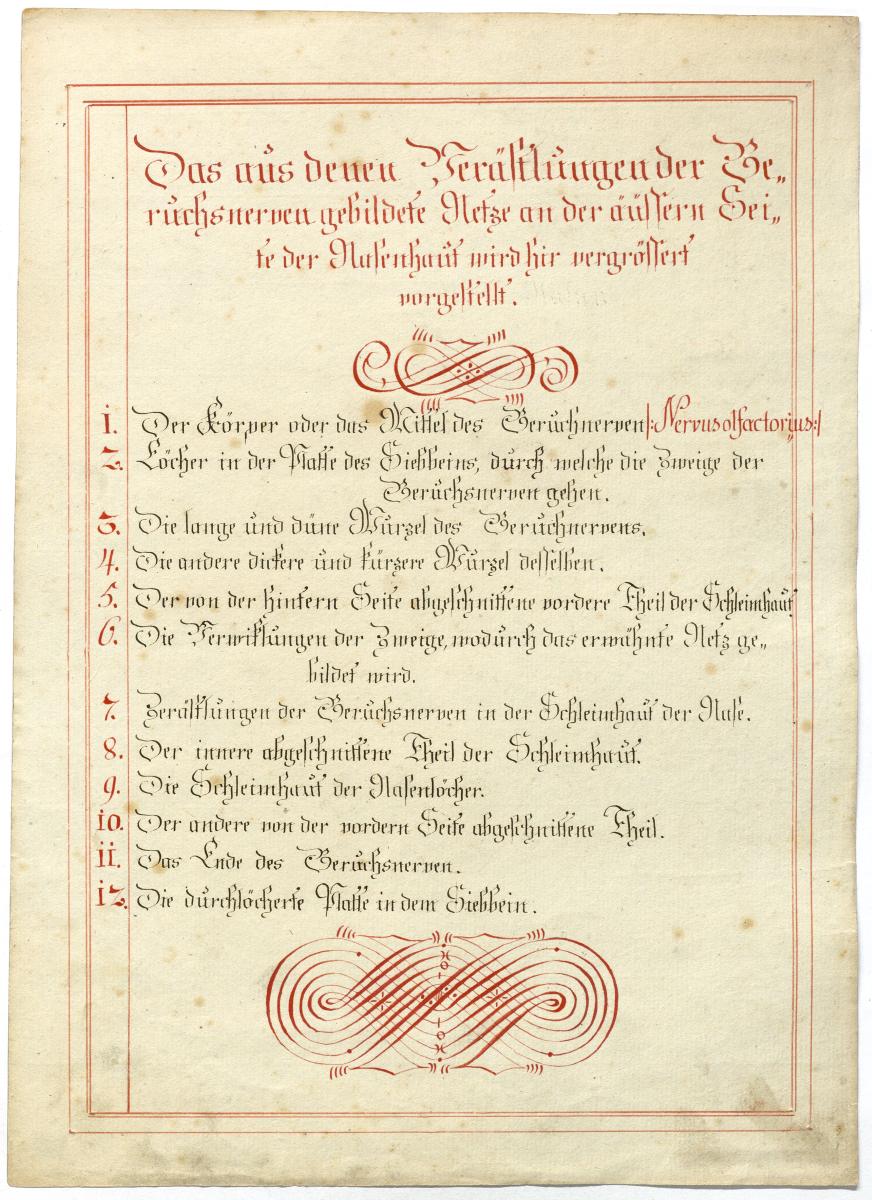 Das aus denen Verästlungen der Ge„
ruchsnerven gebildete Netze an der äüssern Sei„
te der Nasenhaut wird hir vergrössert
vorgestellt.
1. Der Körper oder das Mittel des Geruchnerven |: Nervus olfactorius :|
2. Löcher in der Platte des Siebbeins, durch welche die Zweige der
Geruchsnerven gehen.
3. Die lange und düne Wurzel des Geruchnervens.
4. Die andere dickere und kürzere Wurzel desselben.
5. Der von der hintern Seite abgeschnittene vordere Theil der Schleimhaut
6. Die Verwiklungen der Zweige, wodurch das erwähnte Netz ge„
bildet wird.
7. Zerästlungen der Geruchsnerven in der Schleimhaut der Nase.
8. Der innere abgeschnittene Theil der Schleimhaut.
9. Die Schleimhaut der Nasenlöcher.
10. Der andere von der vordern Seite abgeschnittene Theil.
11. Das Ende des Geruchsnerven.
12. Die durchlöcherte Platte in dem Siebbein.